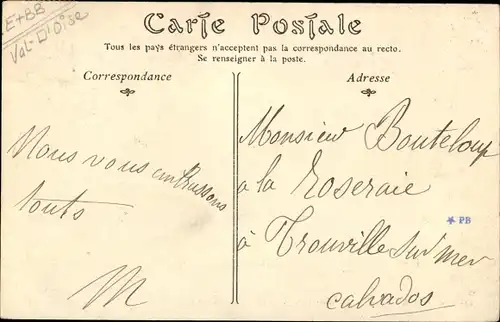 E+BB
Val-D'Oise
Carte Postale
Tous les pays étrangers n'acceptent pas la correspondance au recto.
Se renseigner à la poste.
Correspondance
Adresse
Nous vous embrassons
touts
M
Monsieur Bouteloup
a la Roseraie
à Trouville sur mer
calvados
* PB